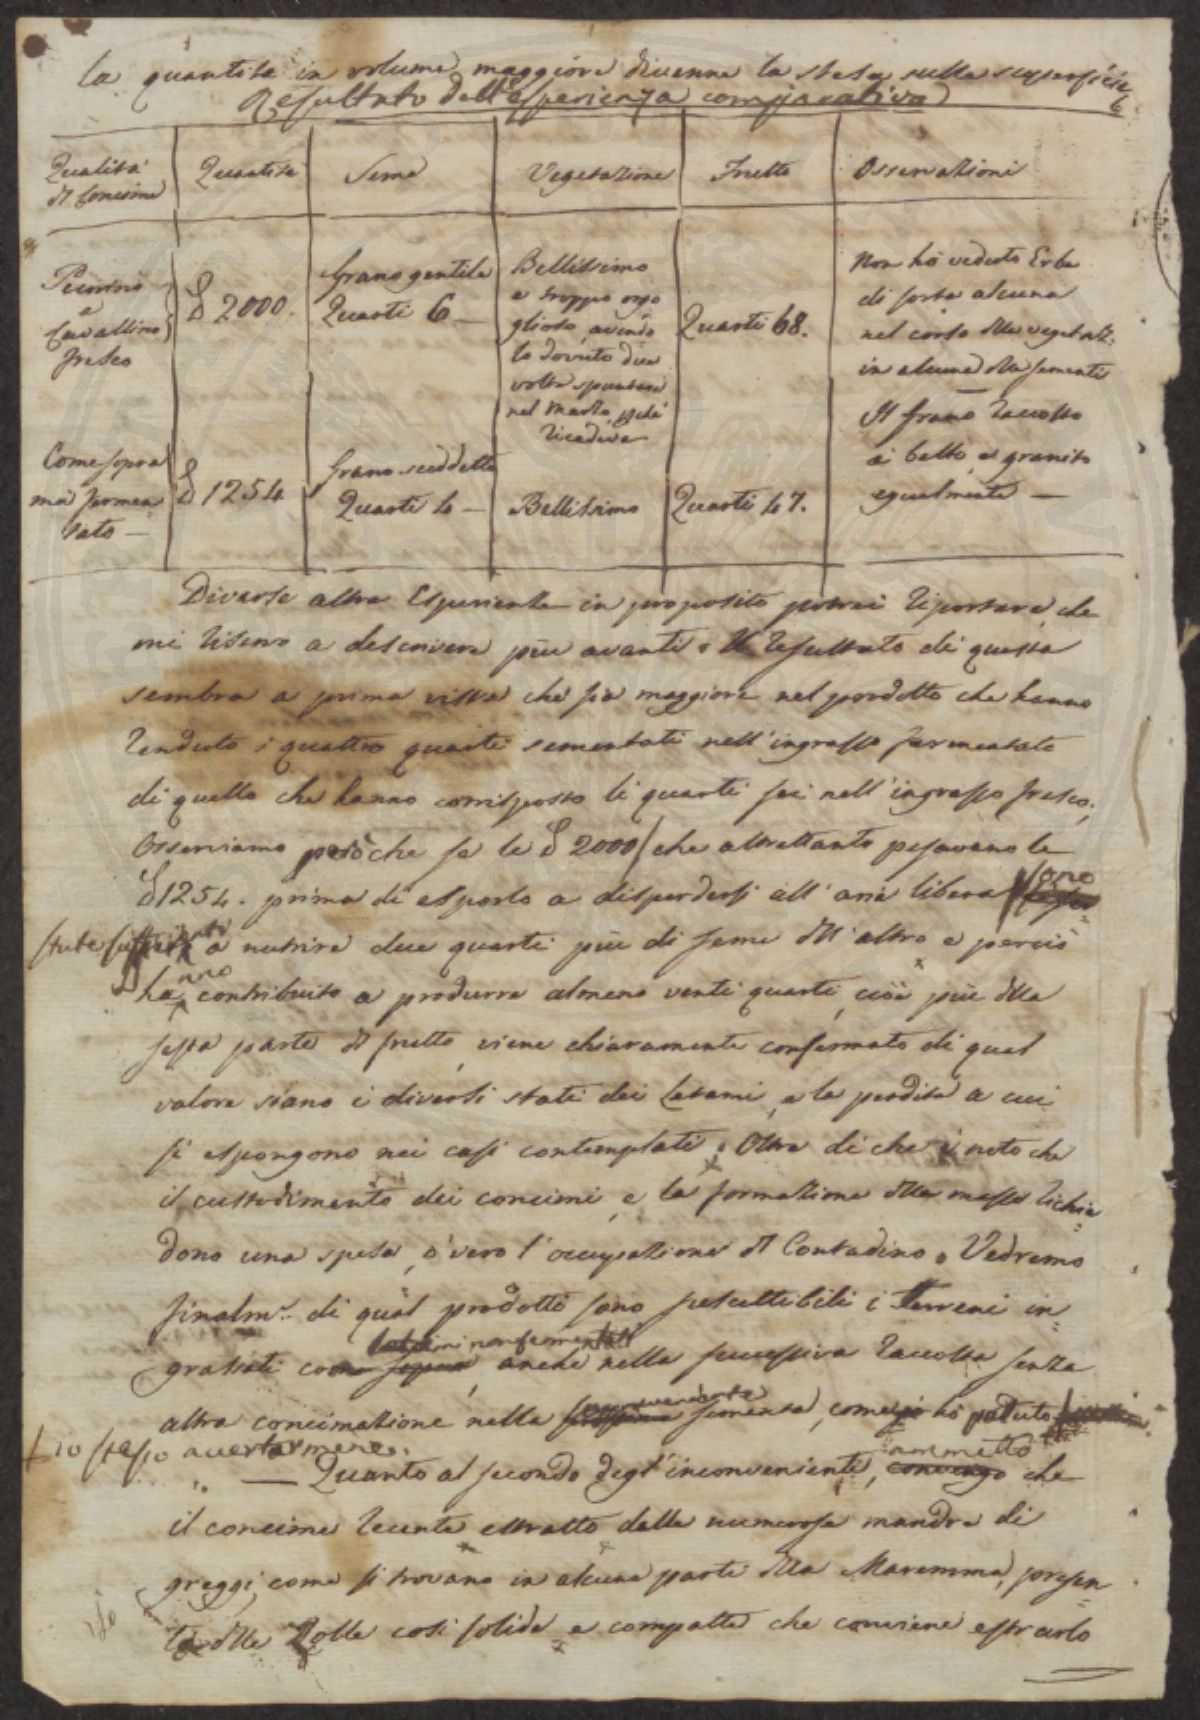 la quantità in volume maggiore divenne la stesa sulla superficie
Resultato dell'esperienza comparativa
Qualità di Concime | Quantità | Seme | Vegetazione | Frutto | Osservazioni
Pecorino e Cavallino fresco | £ 2000. | Grano gentile Quarti 6 — | Bellissimo e troppo orgoglioso, avendolo dovuto due volte spuntare nel Marzo, pchè ricadeva | Quarti 68. | Non hò veduto Erbe di sorta alcuna nel corso della vegetaz. in alcuna delle sementi
Come sopra mà fermentato — | £ 1254 | Grano suddetto Quarti 4 — | Bellissimo | Quarti 47. | Il Grano raccolto è bello, e granito egualmente —
Diverse altre Esperienze in proposito potrei riportare, che
mi riservo a descrivere più avanti. Il resultato di questa
sembra a prima vista che sia maggiore nel prodotto che hanno
renduto i quattro quarti sementati nell'ingrasso fermentato
di quello che hanno corrisposto li quarti sei nell'ingrasso fresco;
Osserviamo però che se le £ 2000 (che altrettanto pesavano le
£ 1254. prima di esporlo a disperdersi all'aria libera) sono
state sufficienti a nutrire due quarti più di seme dell'altro e perciò
hanno contribuito a produrre almeno venti quarti, cioè più della
sesta parte di frutto, viene chiaramente confermato di qual
valore siano i diversi stati dei Letami, e la perdita a cui
si espongono nei casi contemplati. Oltre di che è noto che
il custodimento dei concimi, e la formazione della massa richie=
dono una spesa, ò vero l'occupazione del Contadino. Vedremo
finalm.e di qual prodotto sono suscettibili i Terreni in=
grassati con concimi non fermentati, anche nella successiva raccolta senza
altra concimazione nella sopravveniente sementa, come hò potuto
io stesso accertarmene.
— Quanto al secondo degl'inconvenienti, ammetto che
il concime recente estratto dalle numerose mandre di
greggi, come si trovano in alcune parti della Maremma, presen=
ta delle Zolle così solide e compatte che conviene estrarlo